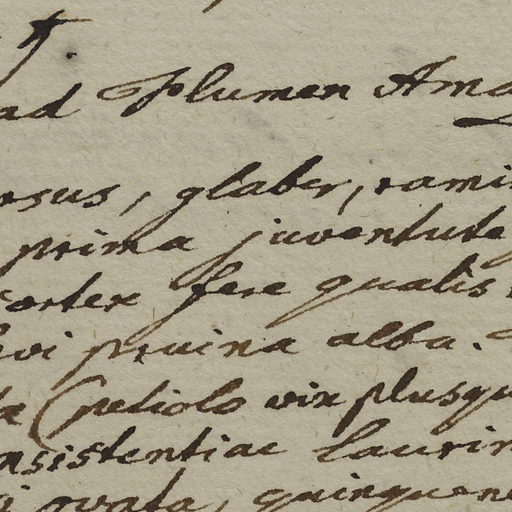 ad Flumen Ama
osus, glaber, rami
prima juventute
Cortex fere qualis
lvi pruina alba.
ta (petiolo vix plusqu
onsistentiae laurin
ervata, quinquene